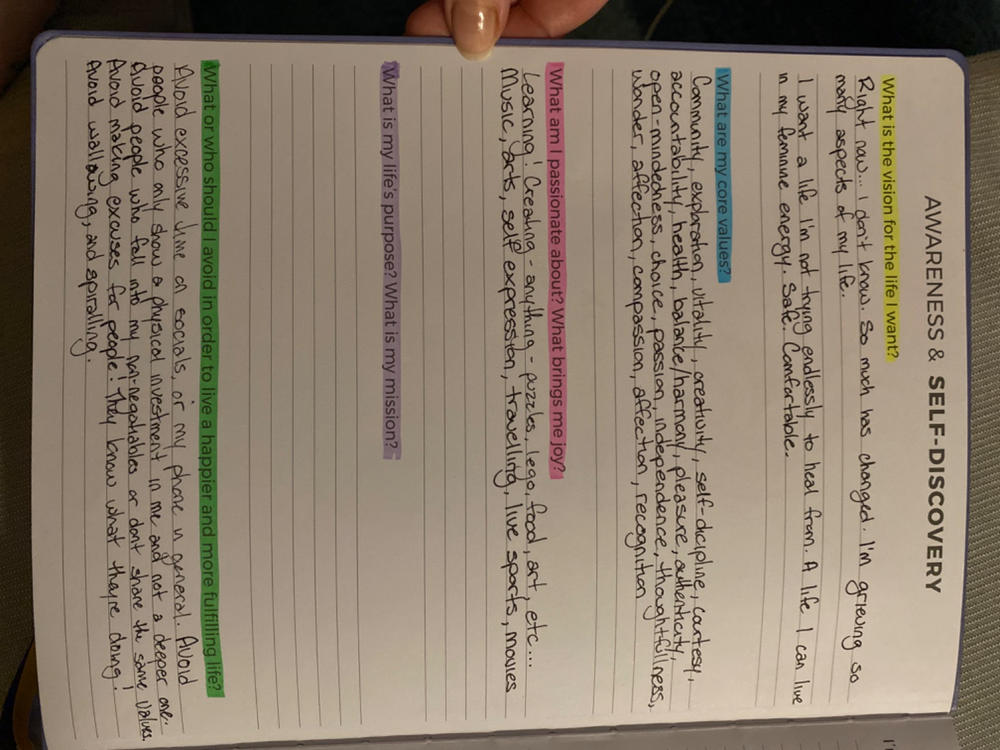 AWARENESS & SELF-DISCOVERY
What is the vision for the life I want?
Right now... I don't know. So much has changed. I'm grieving so
many aspects of my life.
I want a life I'm not trying endlessly to heal from. A life I can live
in my feminine energy. Safe. Comfortable.
What are my core values?
Community, exploration, vitality, creativity, self-dicipline, courtesy,
accountability, health, balance/harmony, pleasure, authenticity,
open-mindedness, choice, passion, independence, thoughtfullness,
wonder, affection, compassion, affection, recognition
What am I passionate about? What brings me joy?
Learning! Creating - anything - puzzles, lego, food, art, etc...
Music, arts, self expression, travelling, live sports, movies
What is my life's purpose? What is my mission?
What or who should I avoid in order to live a happier and more fulfilling life?
Avoid excessive time on socials, or my phone in general. Avoid
people who only show a physical investment in me and not a deeper one.
Avoid people who fall into my non-negotiables or don't share the same values.
Avoid making excuses for people! They know what they're doing!
Avoid wallowing, and spiralling.